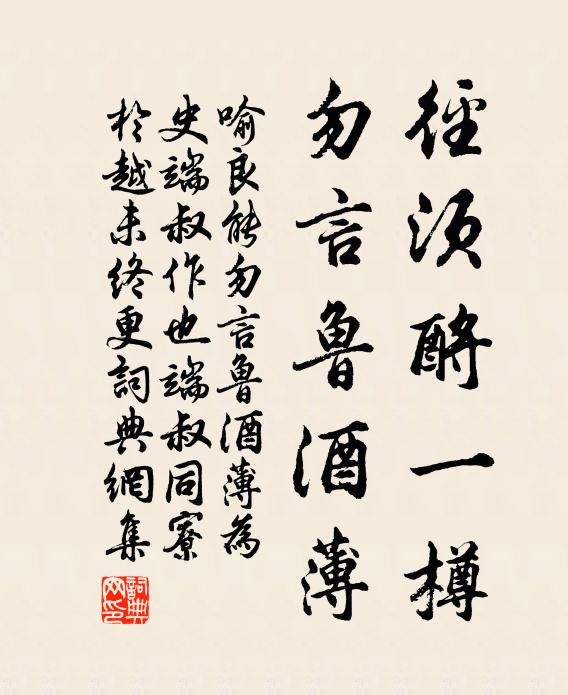 徑須酹一樽
勿言魯酒薄
喻良能勿言魯酒薄為
史端叔作也端叔同寮
於越未終更詞典網集
詞典网印